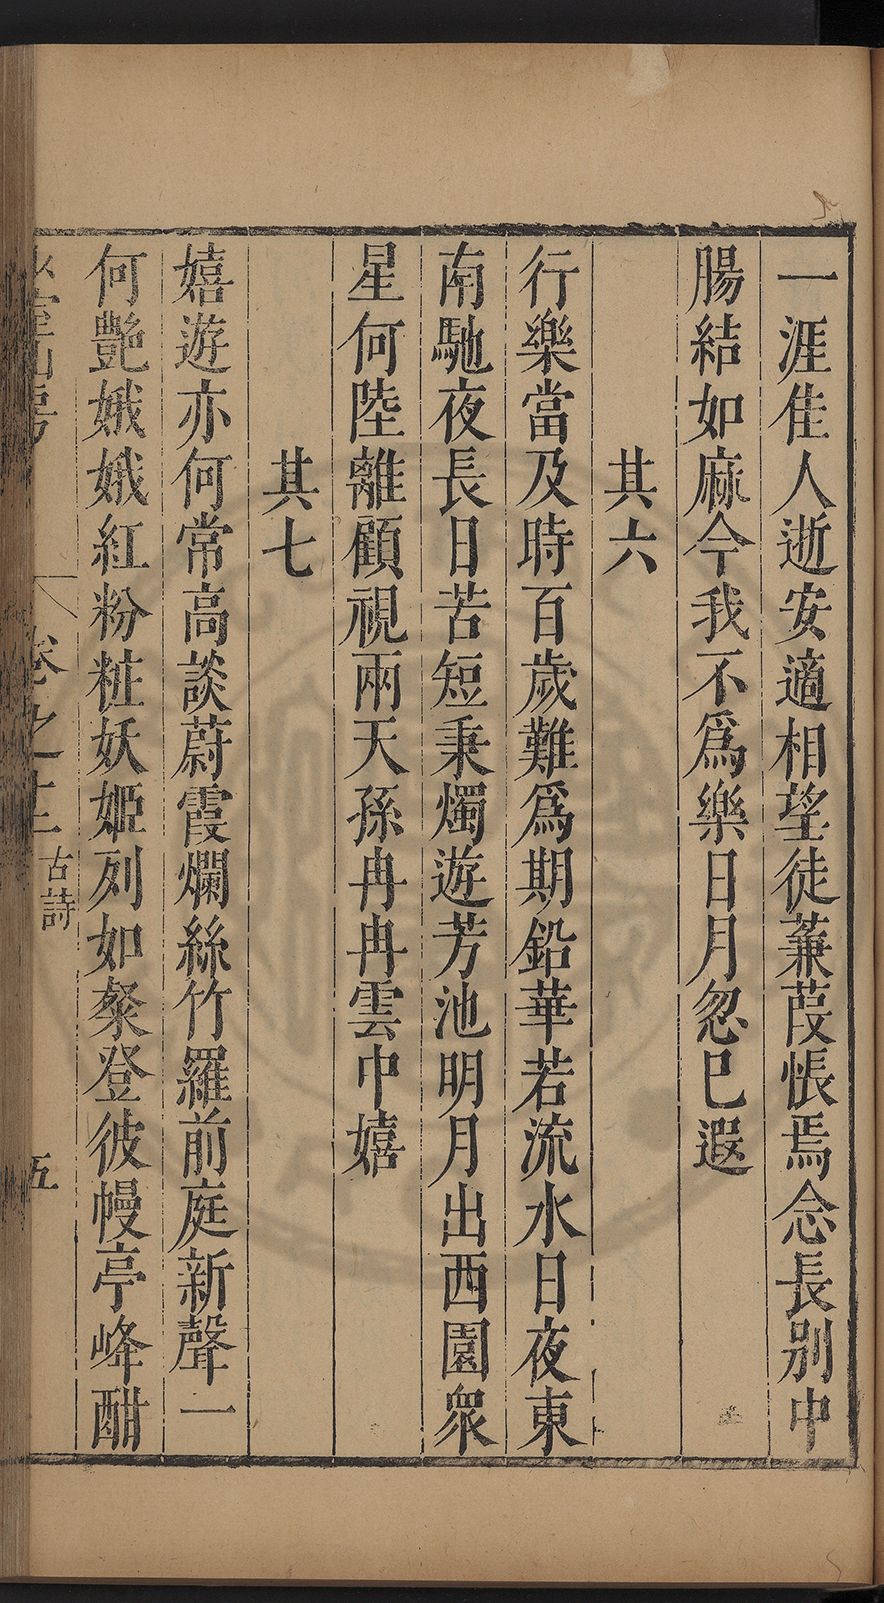 一涯佳人逝安適相望徒蒹葭悵焉念長别中
腸結如麻今我不爲樂日月忽已遐
其六
行樂當及時百歲難爲期鉛華若流水日夜東
南馳夜長日苦短秉燭遊芳池明月出西園衆
星何陸離顧視兩天孫冉冉雲中嬉
其七
嬉遊亦何常高談蔚霞爛絲竹羅前庭新聲一
何艶娥娥紅粉粧妖姬列如粲登彼幔亭峰酣
卷之三 古詩 五